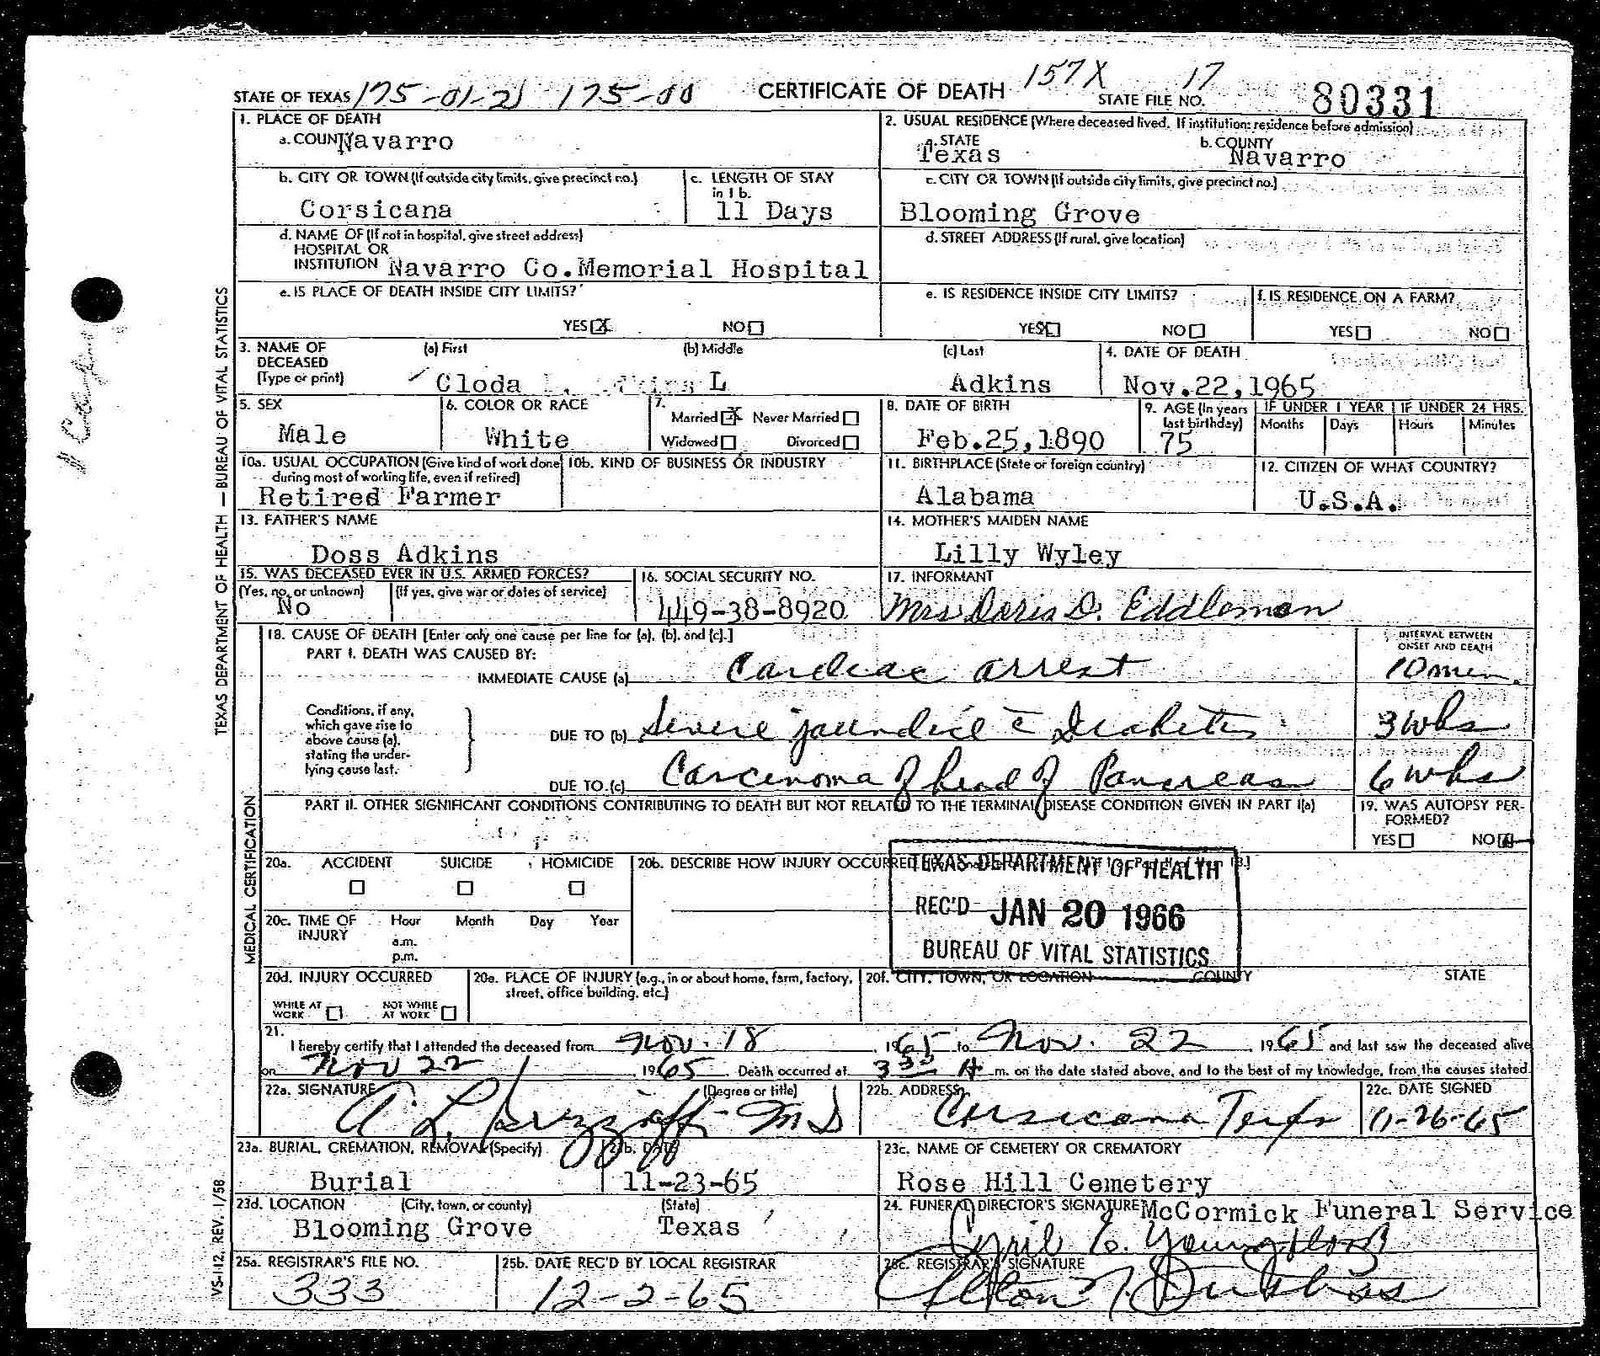 157X 17
STATE OF TEXAS 175-01-21 175-00 CERTIFICATE OF DEATH STATE FILE NO. 80331
1. PLACE OF DEATH
a. COUNTY Navarro
2. USUAL RESIDENCE (Where deceased lived. If institution: residence before admission)
a. STATE Texas b. COUNTY Navarro
b. CITY OR TOWN (If outside city limits, give precinct no.) Corsicana
c. LENGTH OF STAY in 1b. 11 Days
c. CITY OR TOWN (If outside city limits, give precinct no.) Blooming Grove
d. NAME OF (If not in hospital, give street address)
HOSPITAL OR
INSTITUTION Navarro Co.Memorial Hospital
d. STREET ADDRESS (If rural, give location)
e. IS PLACE OF DEATH INSIDE CITY LIMITS?
YES X NO
e. IS RESIDENCE INSIDE CITY LIMITS?
YES X NO
f. IS RESIDENCE ON A FARM?
YES NO
3. NAME OF DECEASED (Type or print)
(a) First (b) Middle (c) Last
Cloda L Adkins
4. DATE OF DEATH
Nov.22,1965
5. SEX Male
6. COLOR OR RACE White
7. Married X Never Married
Widowed Divorced
8. DATE OF BIRTH Feb.25,1890
9. AGE (In years last birthday) 75
IF UNDER 1 YEAR IF UNDER 24 HRS.
Months Days Hours Minutes
10a. USUAL OCCUPATION (Give kind of work done during most of working life, even if retired)
Retired Farmer
10b. KIND OF BUSINESS OR INDUSTRY
11. BIRTHPLACE (State or foreign country) Alabama
12. CITIZEN OF WHAT COUNTRY? U.S.A.
13. FATHER'S NAME Doss Adkins
14. MOTHER'S MAIDEN NAME Lilly Wyley
15. WAS DECEASED EVER IN U.S. ARMED FORCES?
(Yes, no, or unknown) (If yes, give war or dates of service)
No
16. SOCIAL SECURITY NO. 449-38-8920
17. INFORMANT Mrs Doris D. Eddleman
18. CAUSE OF DEATH [Enter only one cause per line for (a), (b), and (c).]
INTERVAL BETWEEN ONSET AND DEATH
PART I. DEATH WAS CAUSED BY:
IMMEDIATE CAUSE (a) Cardiac arrest 10 min.
Conditions, if any, which gave rise to above cause (a), stating the underlying cause last.
DUE TO (b) Severe jaundice c̄ Diabetes 3 wks
DUE TO (c) Carcinoma of head of Pancreas 6 wks
PART II. OTHER SIGNIFICANT CONDITIONS CONTRIBUTING TO DEATH BUT NOT RELATED TO THE TERMINAL DISEASE CONDITION GIVEN IN PART I(a)
19. WAS AUTOPSY PERFORMED?
YES NO
20a. ACCIDENT SUICIDE HOMICIDE
20b. DESCRIBE HOW INJURY OCCURRED
TEXAS DEPARTMENT OF HEALTH
REC'D JAN 20 1966
BUREAU OF VITAL STATISTICS
20c. TIME OF INJURY Hour Month Day Year
a.m.
p.m.
20d. INJURY OCCURRED
WHILE AT WORK NOT WHILE AT WORK
20e. PLACE OF INJURY (e.g., in or about home, farm, factory, street, office building, etc.)
20f. CITY, TOWN, OR LOCATION COUNTY STATE
21. I hereby certify that I attended the deceased from Nov. 18 1965 to Nov. 22 1965 and last saw the deceased alive
on Nov 22 1965 Death occurred at 3 A m. on the date stated above, and to the best of my knowledge, from the causes stated.
22a. SIGNATURE (Degree or title) A L MD
22b. ADDRESS Corsicana Texas
22c. DATE SIGNED 11-26-65
23a. BURIAL, CREMATION, REMOVAL (Specify) Burial
23b. DATE 11-23-65
23c. NAME OF CEMETERY OR CREMATORY Rose Hill Cemetery
23d. LOCATION (City, town, or county) (State)
Blooming Grove Texas
24. FUNERAL DIRECTOR'S SIGNATURE McCormick Funeral Service
25a. REGISTRAR'S FILE NO. 333
25b. DATE REC'D BY LOCAL REGISTRAR 12-2-65
25c. REGISTRAR'S SIGNATURE
TEXAS DEPARTMENT OF HEALTH — BUREAU OF VITAL STATISTICS
MEDICAL CERTIFICATION
VS-112, REV. 1/58